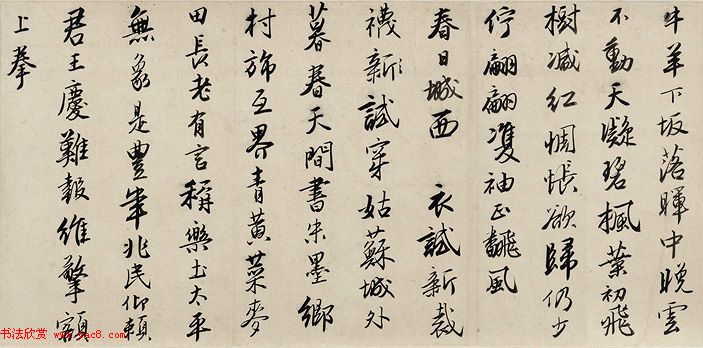 牛羊下坂落暉中晚雲
不動天凝碧楓葉初飛
樹減紅惆悵欲歸仍少
佇翩翩雙袖正飜風
春日城西 衣試新裁
襪新試穿姑蘇城外
暮春天間書朱墨鄉
村旆互界青黃菜麥
田長老有言稱樂土太平
無象是豊年兆民仰賴
君王慶難報維擎額
上拳
书法欣赏 www.yac8.com